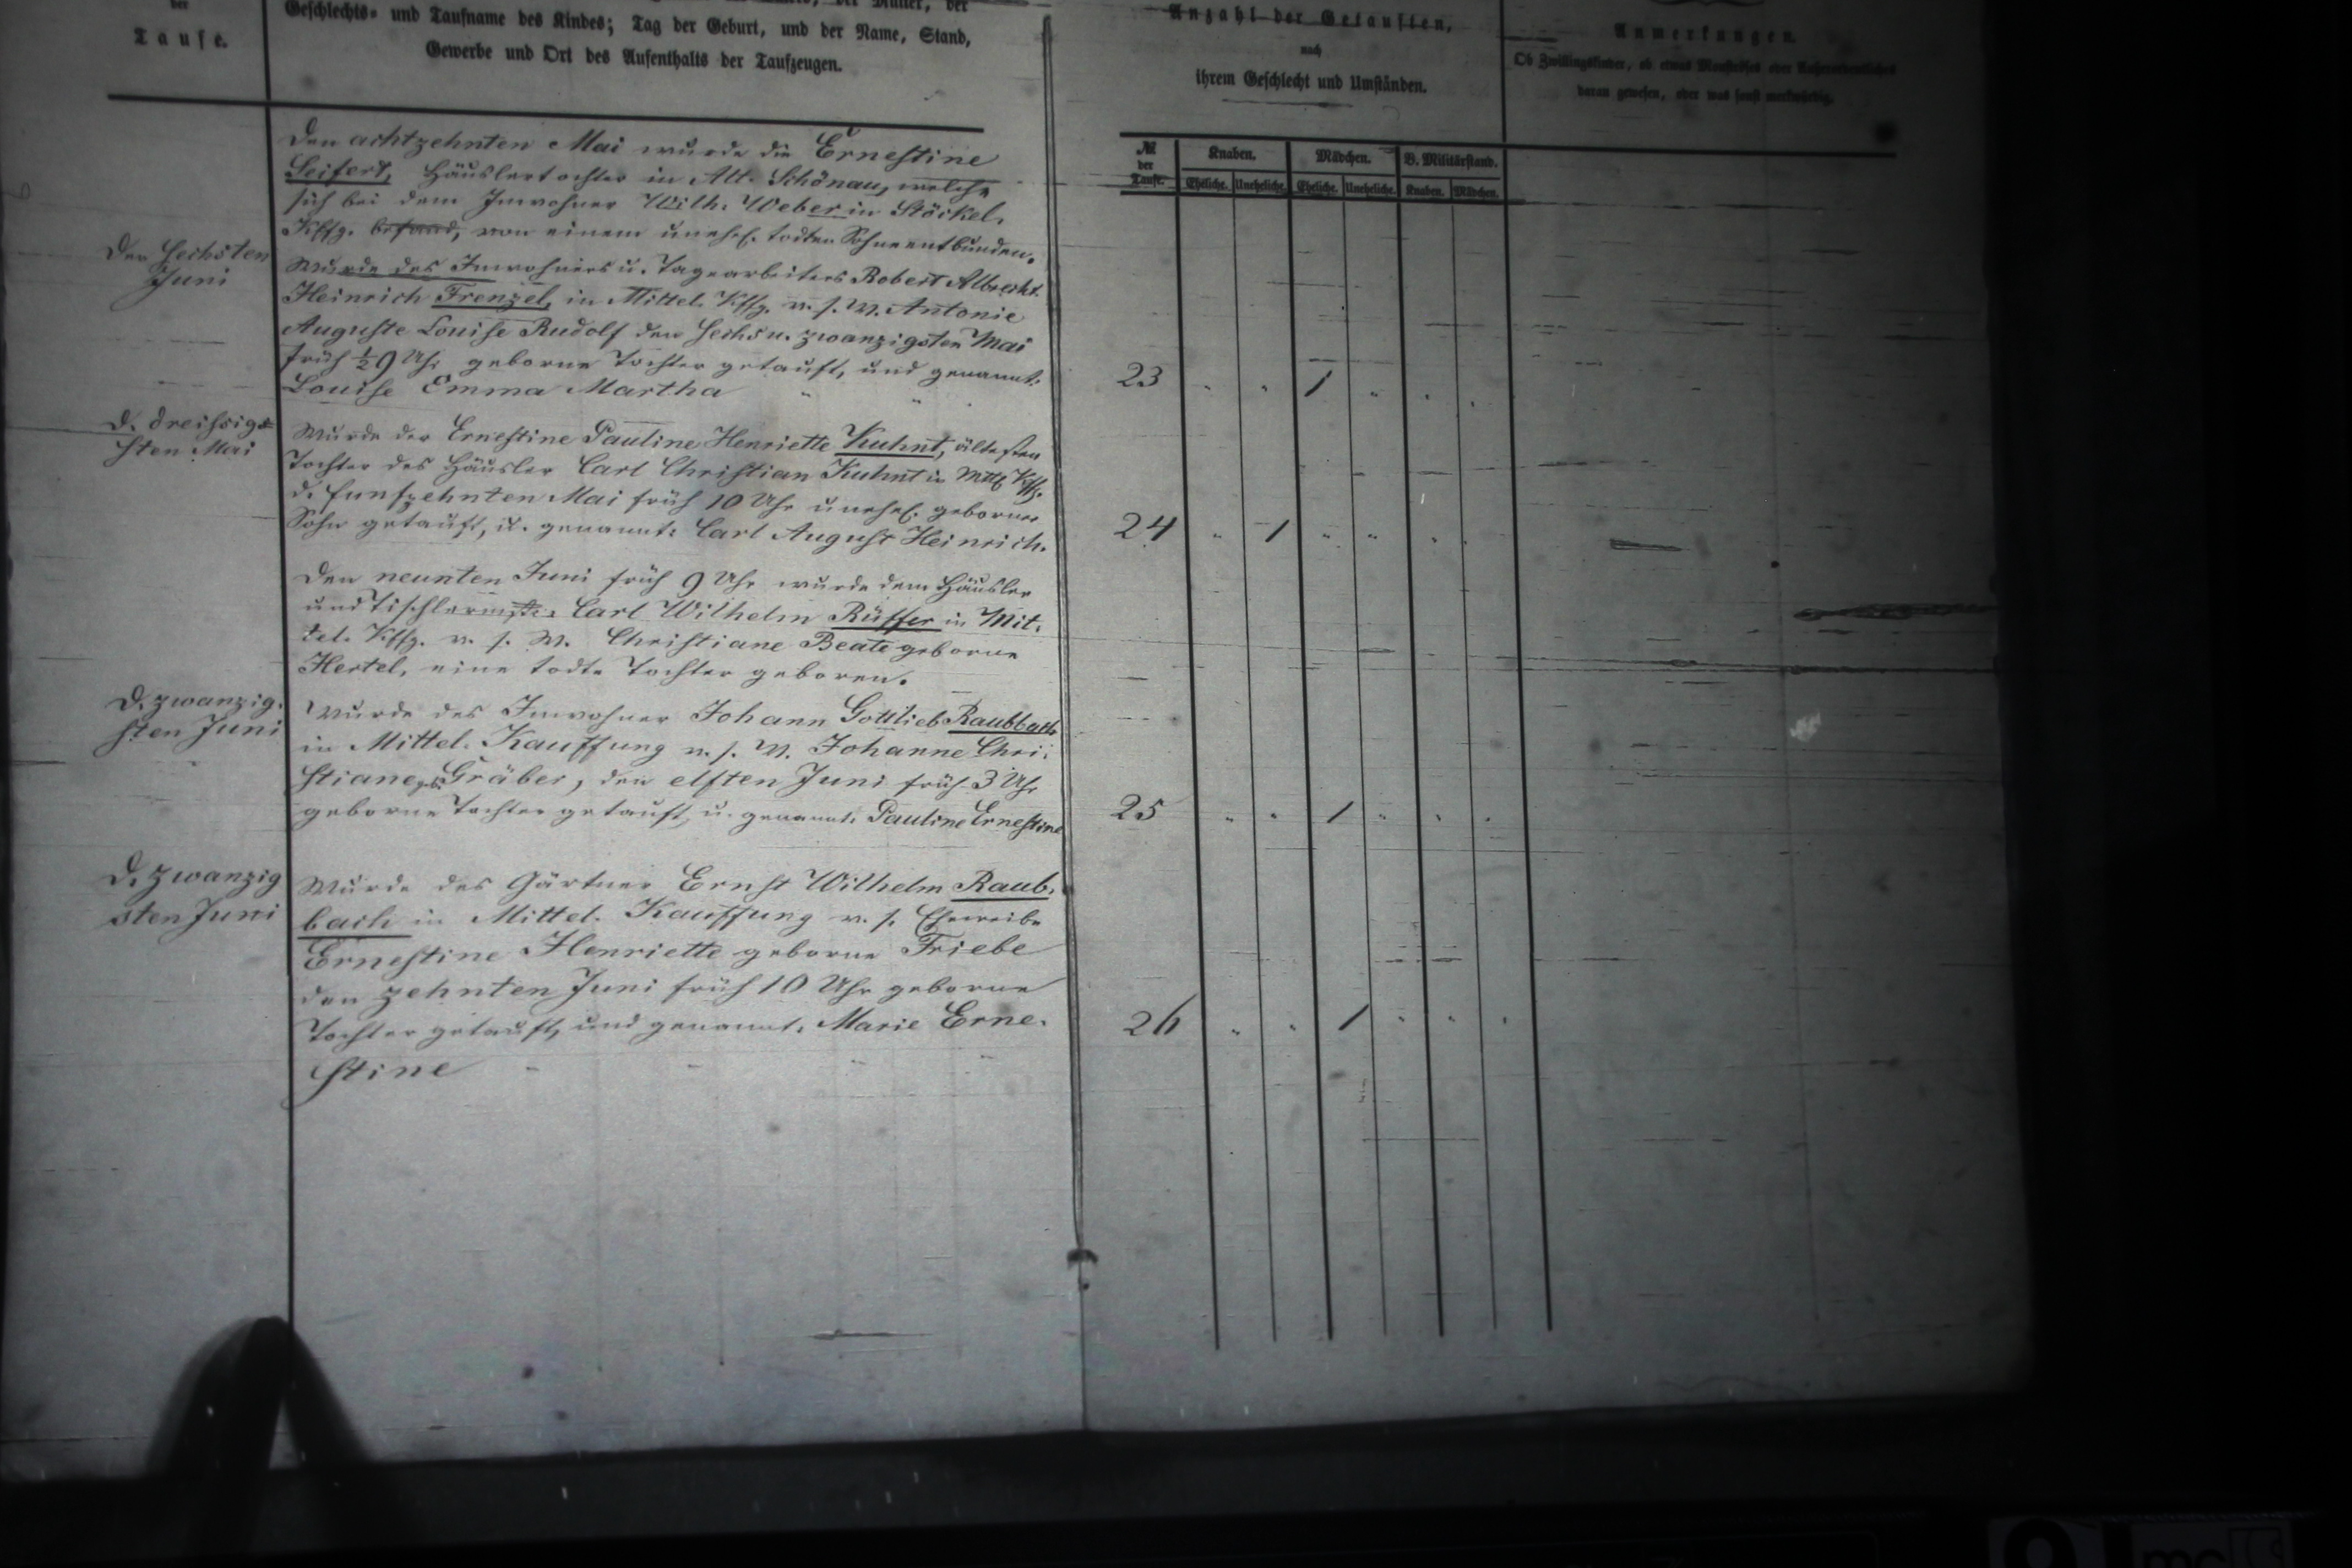 der
Taufe.
Geschlechts- und Taufname des Kindes; Tag der Geburt, und der Name, Stand,
Gewerbe und Ort des Aufenthalts der Taufzeugen.
Den achtzehnten Mai wurde die Ernestine
Seifert, Häuslertochter in Alt-Schönau, welche
sich bei dem Inwohner Wilh. Weber in Stöckel-
Kffg. befand, von einem unehel. todten Sohne entbunden.
Den sechsten
Juni
Wurde des Inwohners u. Tagearbeiters Robert Albrecht
Heinrich Frenzel, in Mittel-Kffg. v. s. W. Antonie
Auguste Louise Rudolf den sechs u. zwanzigsten Mai
früh ½9 Uhr geborne Tochter getauft, und genannt:
Louise Emma Martha
d. dreissig-
sten Mai
Wurde der Ernestine Pauline Henriette Kuhnt, ältesten
Tochter des Häusler Carl Christian Kuhnt in Mttl Kffg.
d. funfzehnten Mai früh 10 Uhr unehel. geborner
Sohn getauft, u. genannt: Carl August Heinrich.
Den neunten Juni früh 9 Uhr wurde dem Häusler
und Tischlermstr. Carl Wilhelm Rüffer in Mit-
tel-Kffg. v. s. W. Christiane Beate geborne
Hertel, eine todte Tochter geboren.
d. zwanzig-
sten Juni
Wurde des Inwohner Johann Gottlieb Raubbach
in Mittel-Kauffung v. s. W. Johanne Chri-
stiane, gb. Gräber, den elften Juni früh 3 Uhr
geborne Tochter getauft, u. genannt: Pauline Ernestine
d. zwanzig
sten Juni
Wurde des Gärtner Ernst Wilhelm Raub-
bach in Mittel-Kauffung v. s. Eheweibe
Ernestine Henriette geborne Friebe
den zehnten Juni früh 10 Uhr geborne
Tochter getauft, und genannt: Marie Erne-
stine
Anzahl der Getauften,
nach
ihrem Geschlecht und Umständen.
Anmerkungen.
Ob Zwillingskinder, ob etwas
daran gewesen, oder was sonst merkwürdig.
№
der
Taufe.
Knaben. Mädchen. V. Militärstand.
Eheliche. Uneheliche. Eheliche. Uneheliche. Knaben. Mädchen.
23 " " 1 " " "
24 " 1 " " " "
25 " " 1 " " "
26 " " 1 " " "